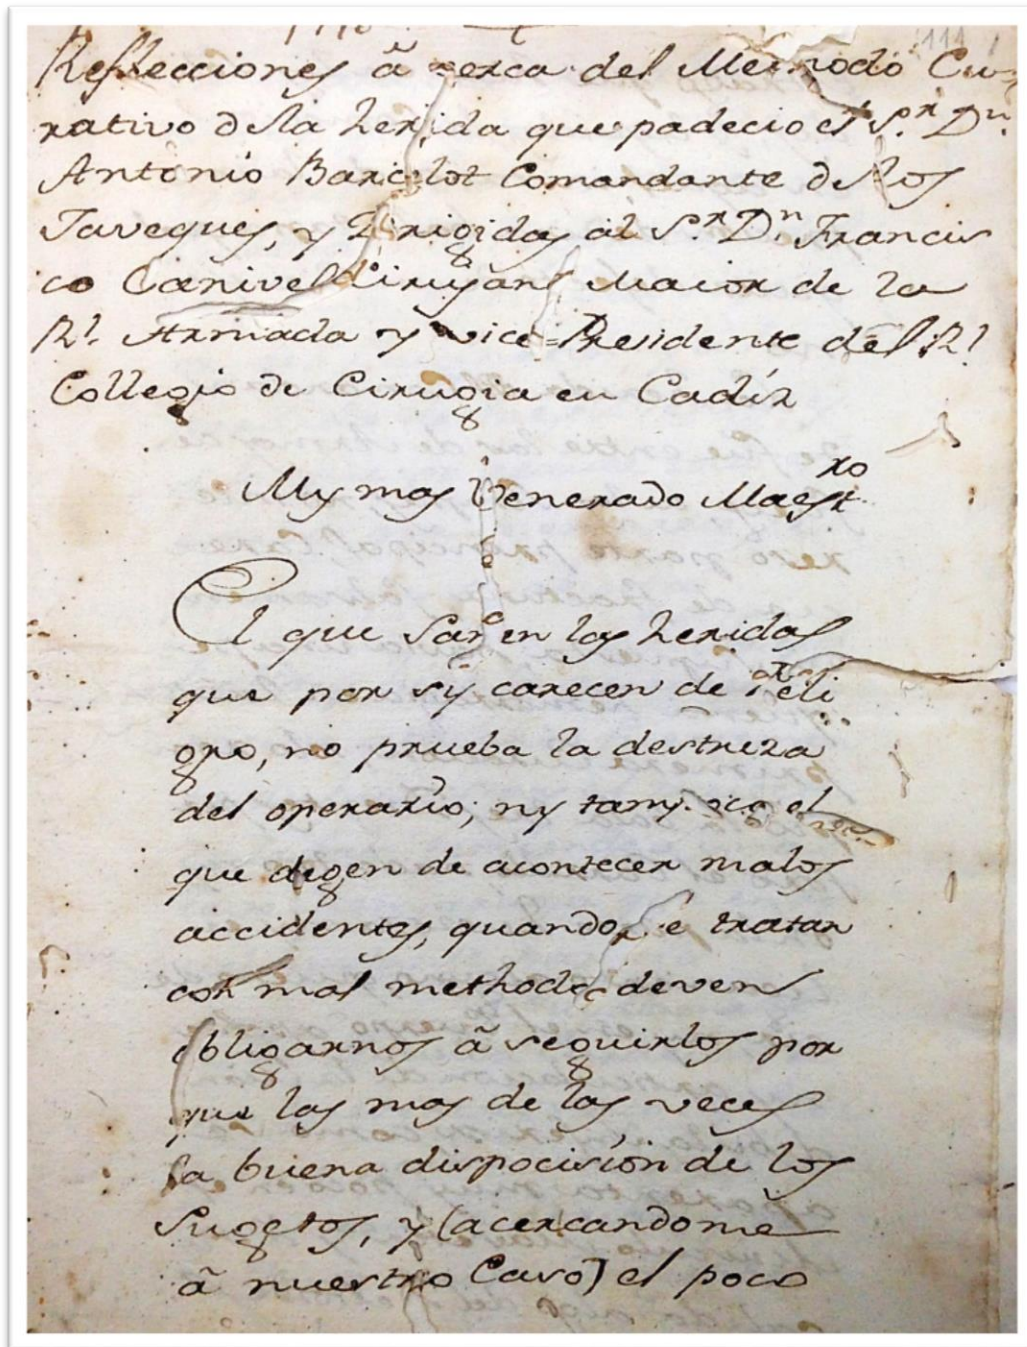 Reflecciones â zerca del Methodo Cu-
rativo de la herida que padecio el S.r D.n
Antonio Barcelot Comandante de los
Javeques, y Dirigidas al S.r D.n Francis
co Canivell Cirujano Maior de la
R.l Armada y vice=Presidente del R.l
Collegio de Cirugia en Cadíz
My mas Venerado Maestro
El que Sanen las heridas
que por sÿ carecen de Peli
gro, no prueba la destreza
del operario; ny tampoco el
que degen de acontecer malos
accidentes, quando se tratan
con mal methodo deven
obligarnos â seguirlos por
que las mas de las veces
la buena dispocisión de los
Sugetos, y (acercandome
â nuestro Caso) el poco